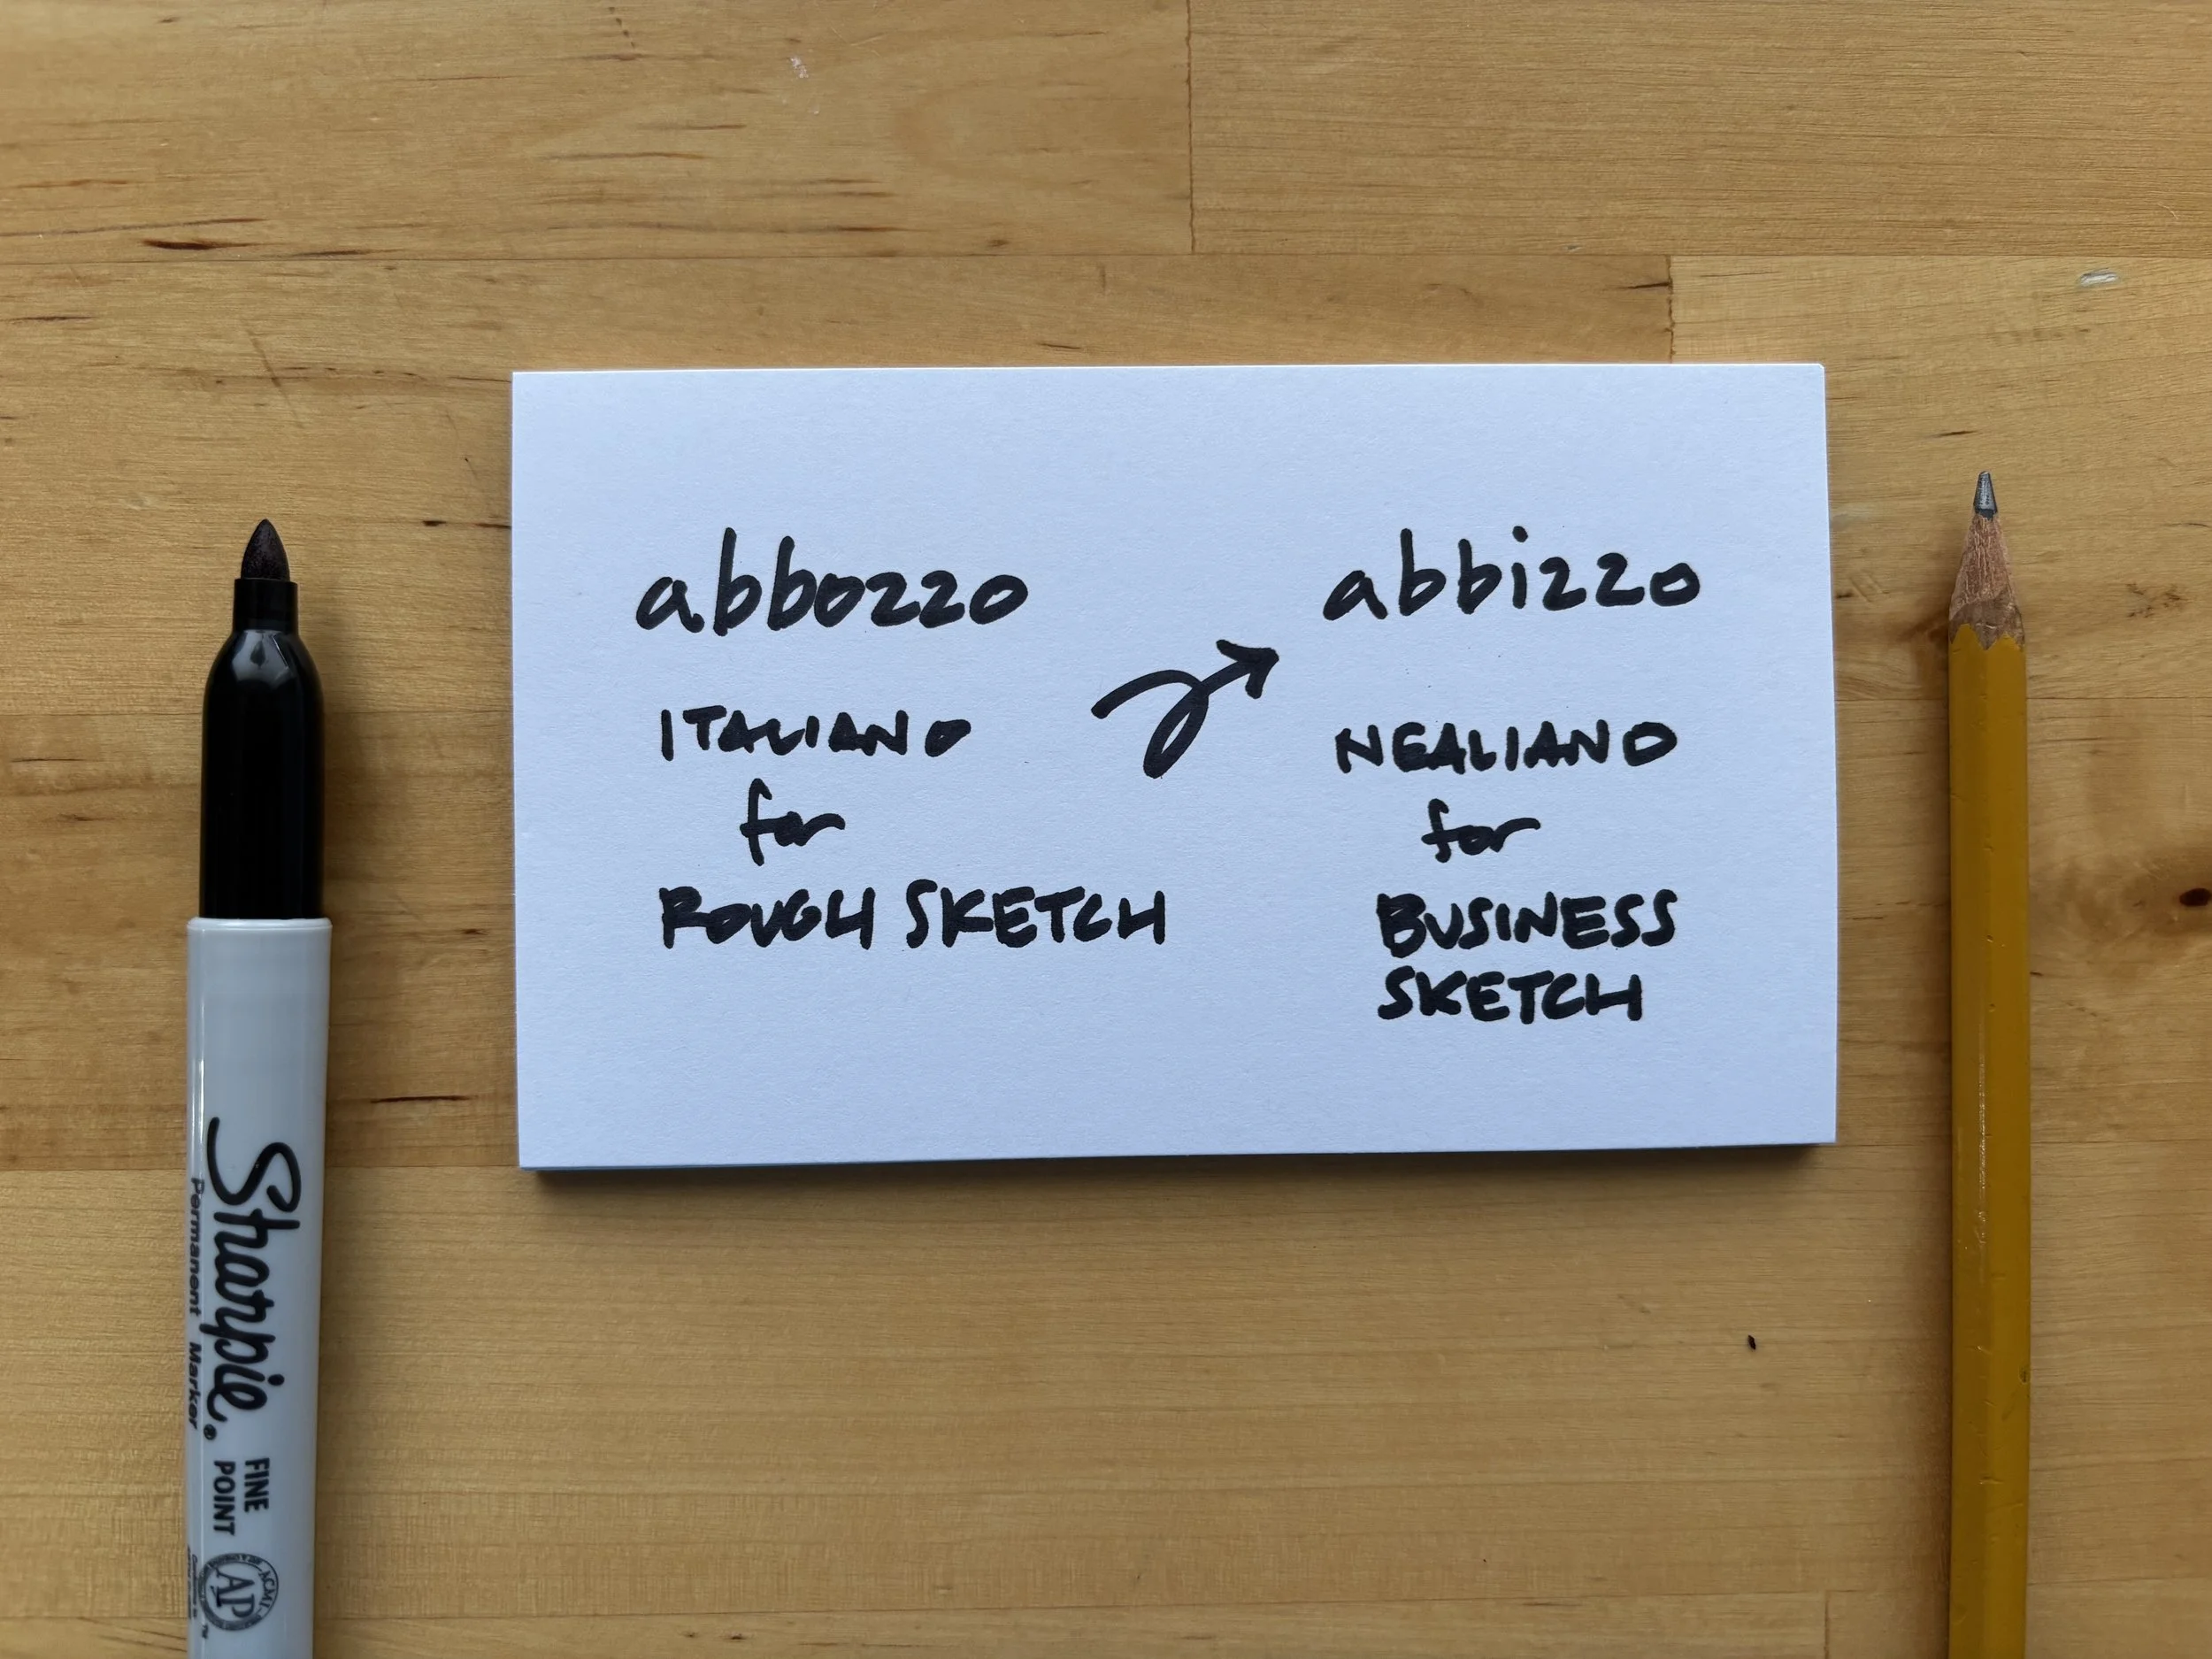 abbozzo
ITALIANO
for
ROUGH SKETCH
abbizzo
NEALIANO
for
BUSINESS
SKETCH
Sharpie®
Permanent Marker
FINE
POINT
AP
ACMI
TM